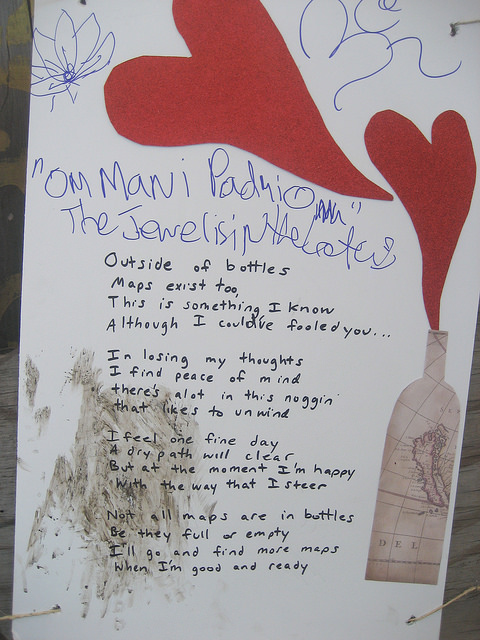 "OM MANi Padmi Omm"
The Jewel is in the Lotus
Outside of bottles
Maps exist too
This is something I know
Although I could've fooled you...
In losing my thoughts
I find peace of mind
there's alot in this noggin
that likes to unwind
I feel one fine day
A dry path will clear
But at the moment I'm happy
With the way that I steer
Not all maps are in bottles
Be they full or empty
I'll go and find more maps
When I'm good and ready
DEL